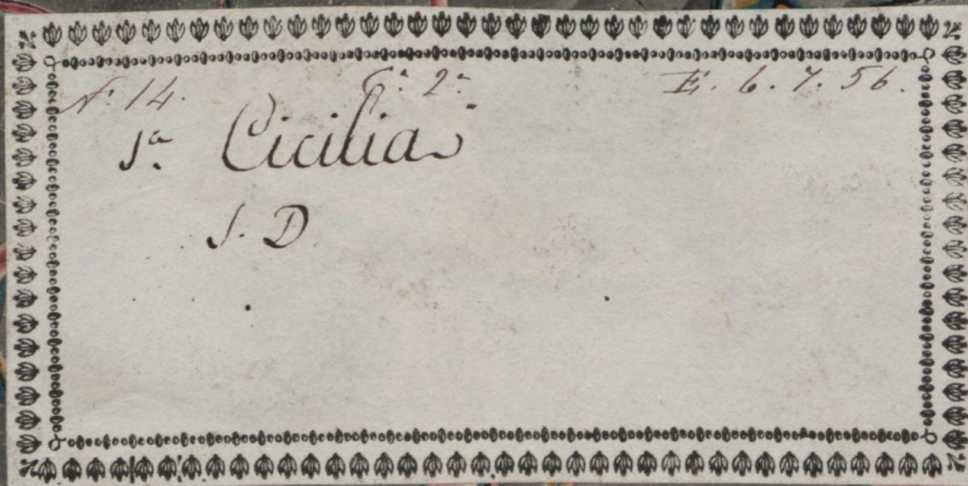 N.º 14. C.ª 2.ª E. 6. 7. 56.
S.ª Cicilia
S. D.